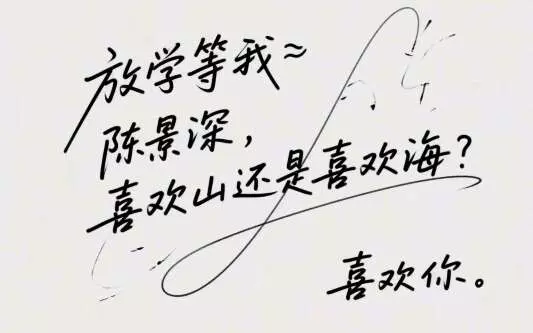 放学等我≈
陈景深，
喜欢山还是喜欢海？
喜欢你。